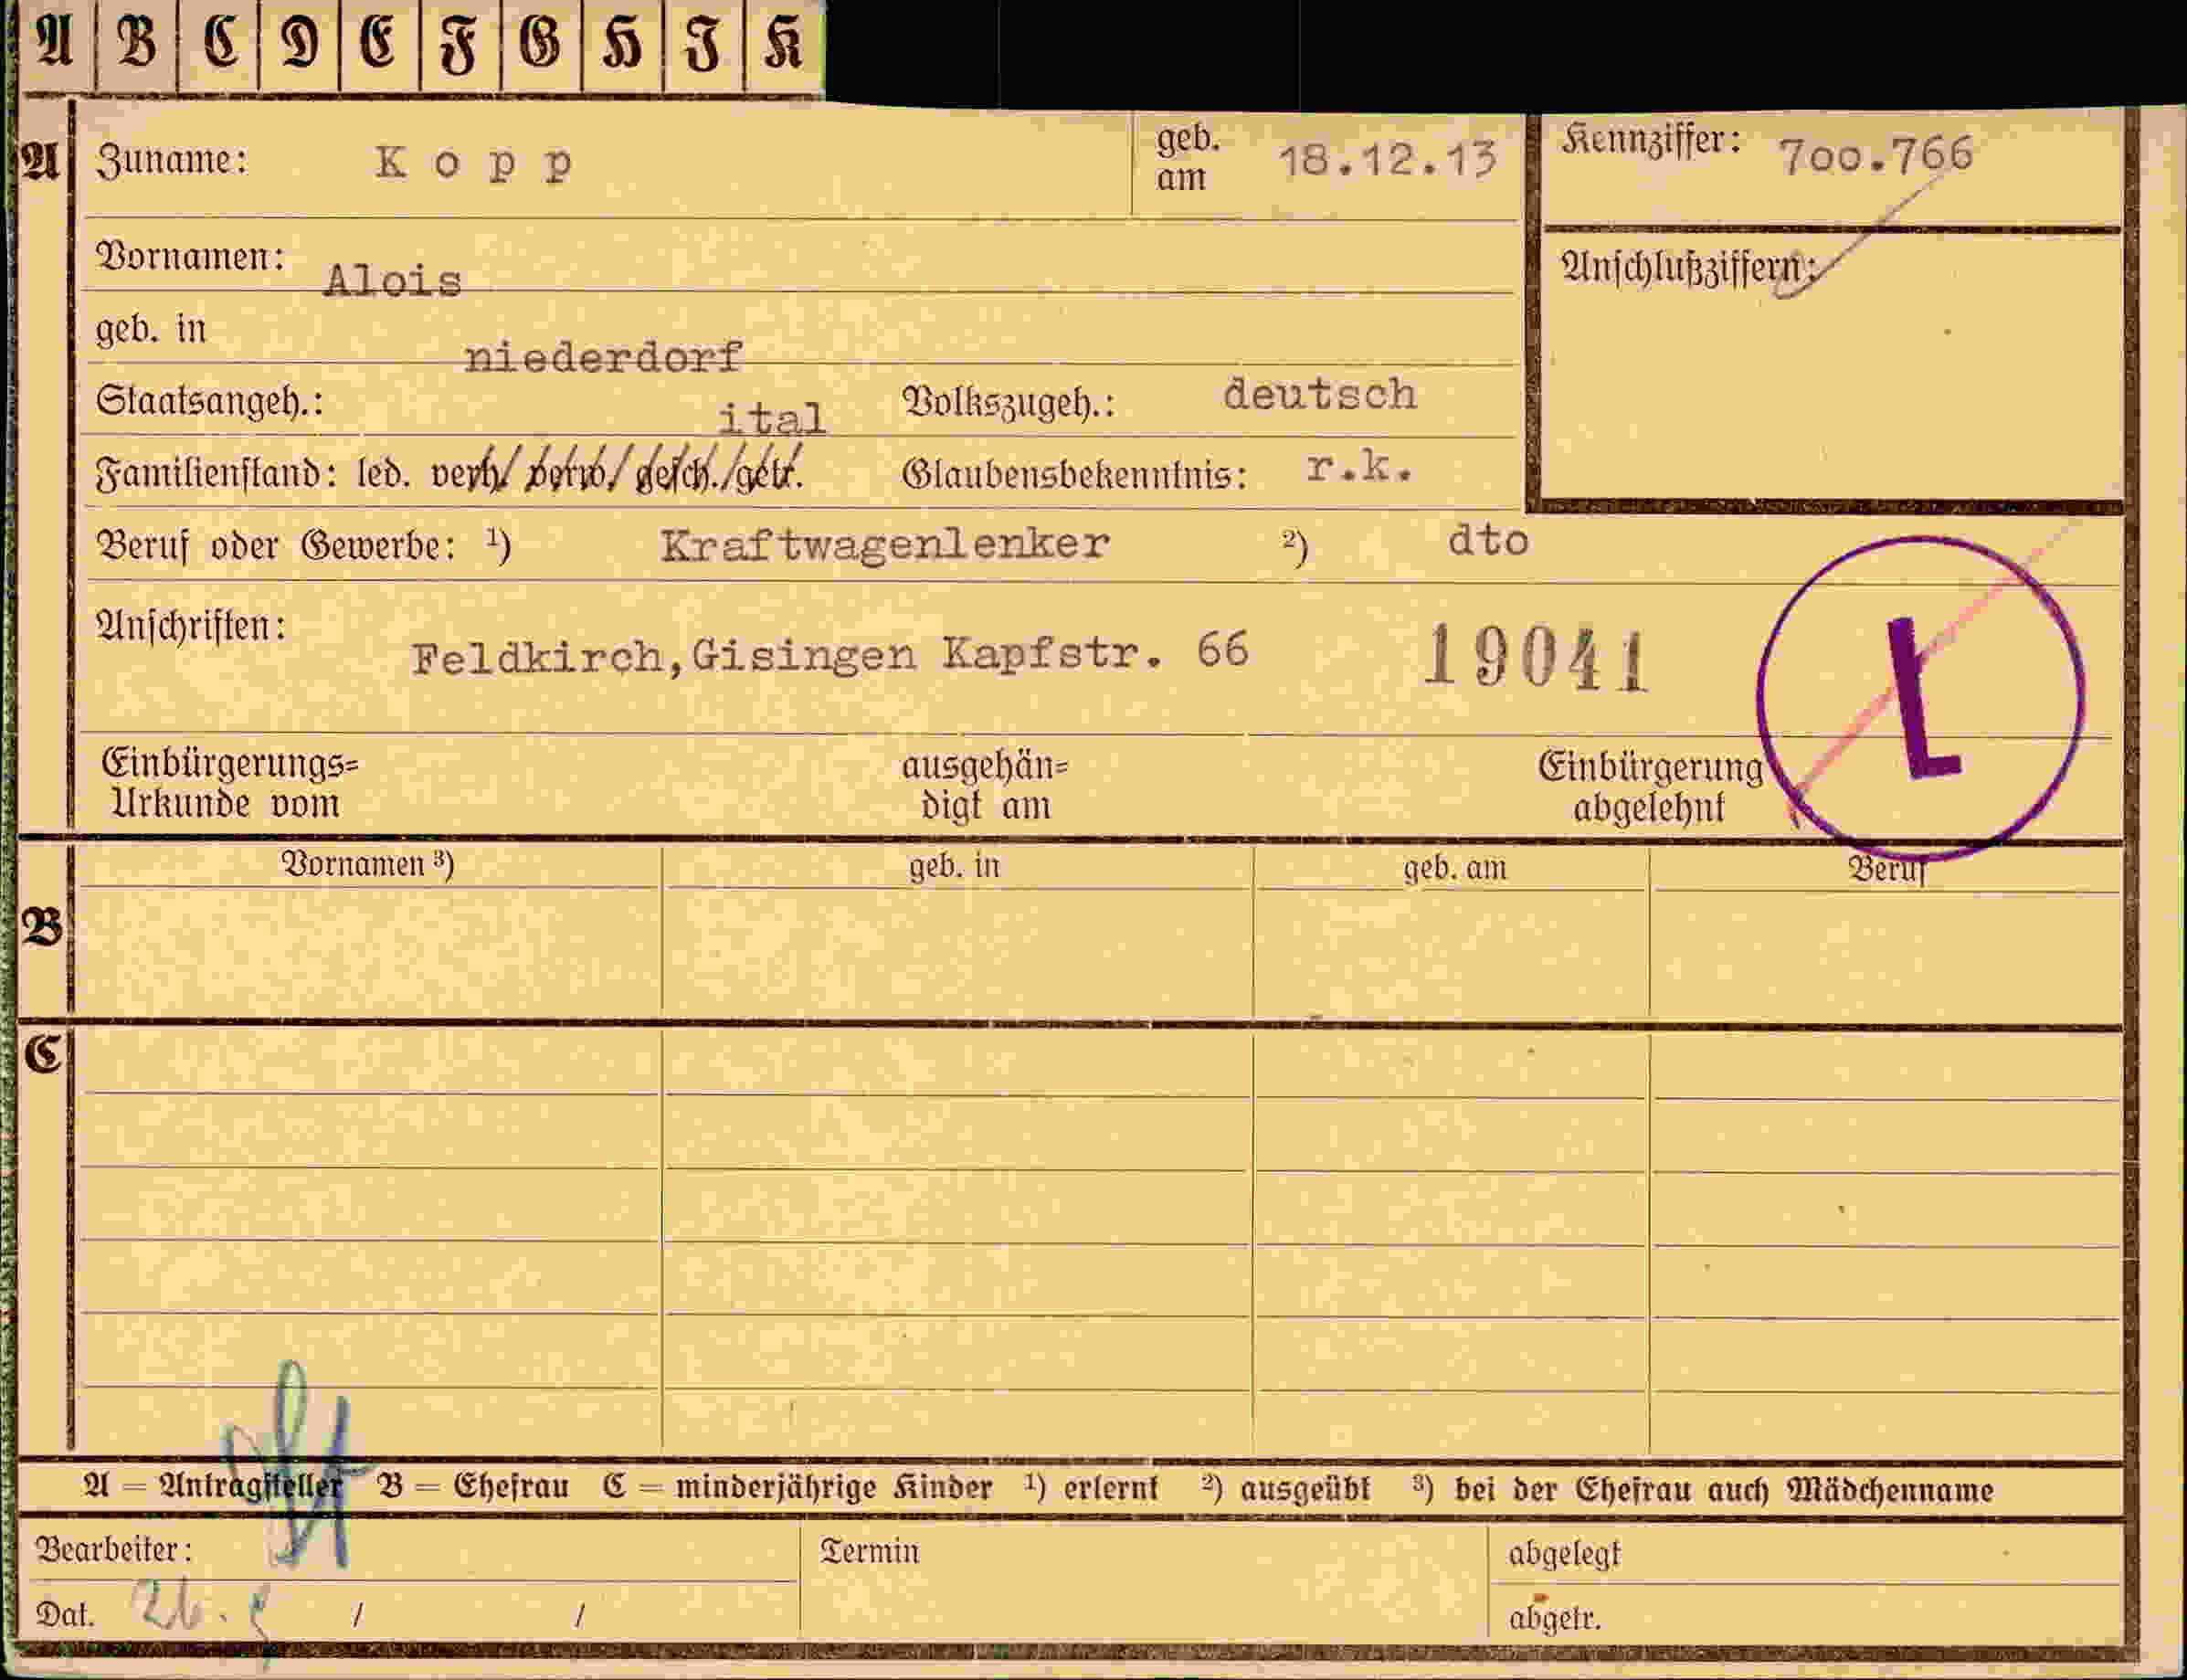 A B C D E F G H J K
A Zuname: Kopp geb. am 18.12.13 Kennziffer: 7oo.766
Vornamen: Alois Anschlußziffern:
geb. in niederdorf
Staatsangeh.: ital Volkszugeh.: deutsch
Familienstand: led. verh/ verw/ gesch./getr. Glaubensbekenntnis: r.k.
Beruf oder Gewerbe: ¹) Kraftwagenlenker ²) dto
Anschriften: Feldkirch,Gisingen Kapfstr. 66 19041 L
Einbürgerungs= ausgehän= Einbürgerung
Urkunde vom digt am abgelehnt
Vornamen ³) geb. in geb. am Beruf
B
C
A = Antragsteller B = Ehefrau C = minderjährige Kinder ¹) erlernt ²) ausgeübt ³) bei der Ehefrau auch Mädchenname
Bearbeiter: Termin abgelegt
Dat. 26. / / abgetr.